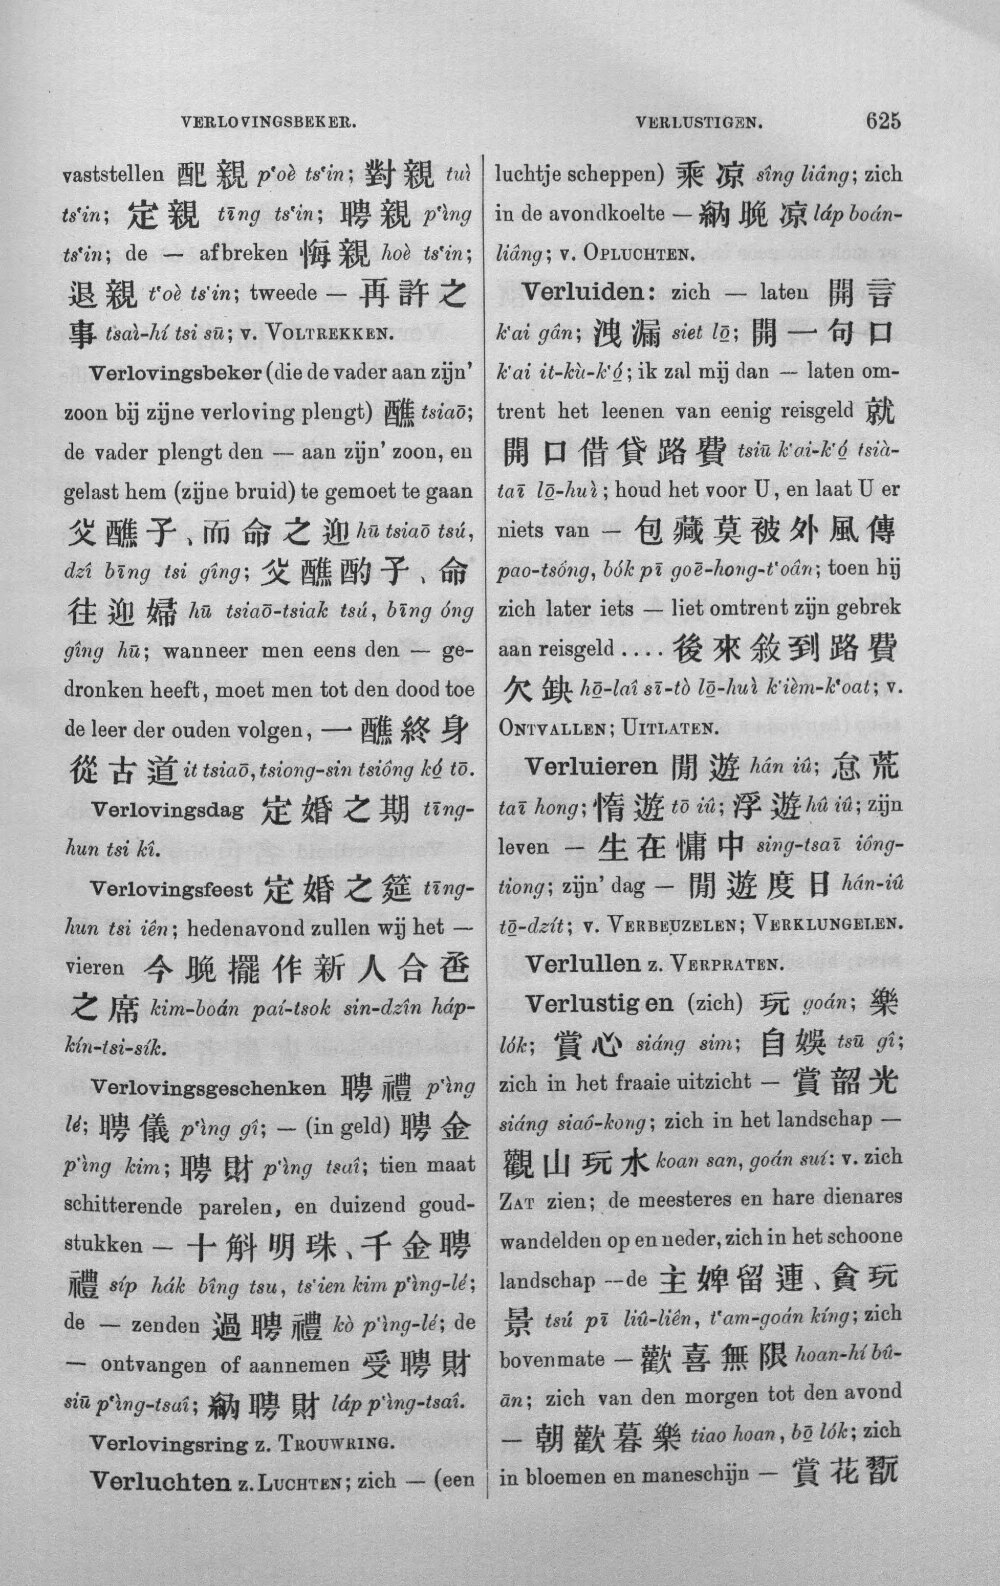 VERLOVINGSBEKER.
VERLUSTIGEN.
625
vaststellen 配親 p'oè ts'in; 對親 tuì
ts'in; 定親 tīng ts'in; 聘親 p'ìng
ts'in; de — afbreken 悔親 hoè ts'in;
退親 t'oè ts'in; tweede — 再許之
事 tsaì-hí tsi sū; v. VOLTREKKEN.
Verlovingsbeker (die de vader aan zijn'
zoon bij zijne verloving plengt) 醮 tsiaō;
de vader plengt den — aan zijn' zoon, en
gelast hem (zijne bruid) te gemoet te gaan
父醮子、而命之迎 hū tsiaō tsú,
dzî bīng tsi gîng; 父醮酌子、命
往迎婦 hū tsiaō-tsiak tsú, bīng óng
gîng hū; wanneer men eens den — ge-
dronken heeft, moet men tot den dood toe
de leer der ouden volgen, 一醮終身
從古道 it tsiaō, tsiong-sin tsiông kó tō.
Verlovingsdag 定婚之期 tīng-
hun tsi kî.
Verlovingsfeest 定婚之筵 tīng-
hun tsi iên; hedenavond zullen wij het —
vieren 今晚擺作新人合卺
之席 kim-boán paí-tsok sin-dzîn háp-
kín-tsi-sík.
Verlovingsgeschenken 聘禮 p'ìng
lé; 聘儀 p'ìng gî; — (in geld) 聘金
p'ìng kim; 聘財 p'ìng tsaî; tien maat
schitterende parelen, en duizend goud-
stukken — 十斛明珠、千金聘
禮 síp hák bîng tsu, ts'ien kim p'ìng-lé;
de — zenden 過聘禮 kò p'ìng-lé; de
— ontvangen of aannemen 受聘財
siū p'ìng-tsaî; 納聘財 láp p'ìng-tsaî.
Verlovingsring z. TROUWRING.
Verluchten z. LUCHTEN; zich — (een
luchtje scheppen) 乘凉 sîng liâng; zich
in de avondkoelte — 納晚凉 láp boán-
liâng; v. OPLUCHTEN.
Verluiden: zich — laten 開言
k'ai gân; 洩漏 siet lō; 開一句口
k'ai it-kù-k'ó; ik zal mij dan — laten om-
trent het leenen van eenig reisgeld 就
開口借貸路費 tsiū k'ai-k'ó tsià-
taī lō-huì; houd het voor U, en laat U er
niets van — 包藏莫被外風傳
pao-tsông, bók pī goē-hong-t'oân; toen hij
zich later iets — liet omtrent zijn gebrek
aan reisgeld .... 後來敘到路費
欠缺 hō-laî sī-tò lō-huì k'ièm-k'oat; v.
ONTVALLEN; UITLATEN.
Verluieren 閒遊 hán iû; 怠荒
taī hong; 惰遊 tō iû; 浮遊 hû iû; zijn
leven — 生在慵中 sing-tsaī iông-
tiong; zijn' dag — 閒遊度日 hán-iû
tō-dzít; v. VERBEUZELEN; VERKLUNGELEN.
Verlullen z. VERPRATEN.
Verlustigen (zich) 玩 goán; 樂
lók; 賞心 siáng sim; 自娛 tsū gî;
zich in het fraaie uitzicht — 賞韶光
siáng siaô-kong; zich in het landschap —
觀山玩水 koan san, goán suí: v. zich
ZAT zien; de meesteres en hare dienares
wandelden op en neder, zich in het schoone
landschap —de 主婢留連、貪玩
景 tsú pī liû-liên, t'am-goán kíng; zich
bovenmate — 歡喜無限 hoan-hí bû-
ān; zich van den morgen tot den avond
— 朝歡暮樂 tiao hoan, bō lók; zich
in bloemen en maneschijn — 賞花翫